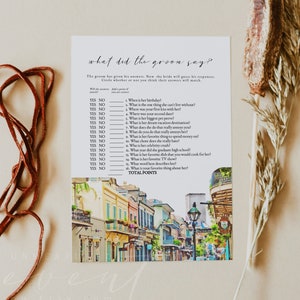 what did the groom say?
The groom has given his answers. Now the bride will guess his responses.
Circle whether or not you think their answers will match.
Will the answers match?
YES NO 1. What is her birthday?
YES NO 2. What is the one thing she can't live without?
YES NO 3. Where was your first kiss with her?
YES NO 4. Where was your second date?
YES NO 5. What is her biggest pet peeve?
YES NO 6. What is her dream vacation destination?
YES NO 7. What does she do that really annoys you?
YES NO 8. What do you do that really annoys her?
YES NO 9. What is her favorite thing to spend money on?
YES NO 10. What chore does she really hate?
YES NO 11. Who is her celebrity crush?
YES NO 12. What year did she graduate high school?
YES NO 13. What is her favorite dish that you would cook for her?
YES NO 14. What is her favorite TV show?
YES NO 15. What word best describes her?
YES NO 16. What is your favorite thing about her?
TOTAL POINTS
event